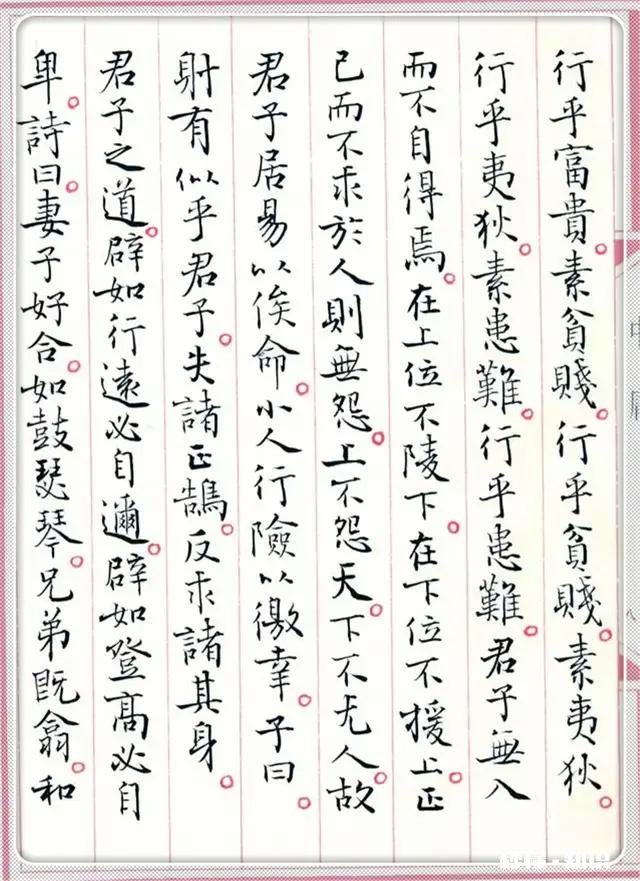 行乎富貴。素貧賤。行乎貧賤。素夷狄。
行乎夷狄。素患難。行乎患難。君子無入
而不自得焉。在上位不陵下。在下位不援上。正
己而不求於人則無怨。上不怨天。下不尤人。故
君子居易以俟命。小人行險以徼幸。子曰。
射有似乎君子。失諸正鵠。反求諸其身。
君子之道。辟如行遠必自邇。辟如登高必自
卑。詩曰。妻子好合。如鼓瑟琴。兄弟既翕。和